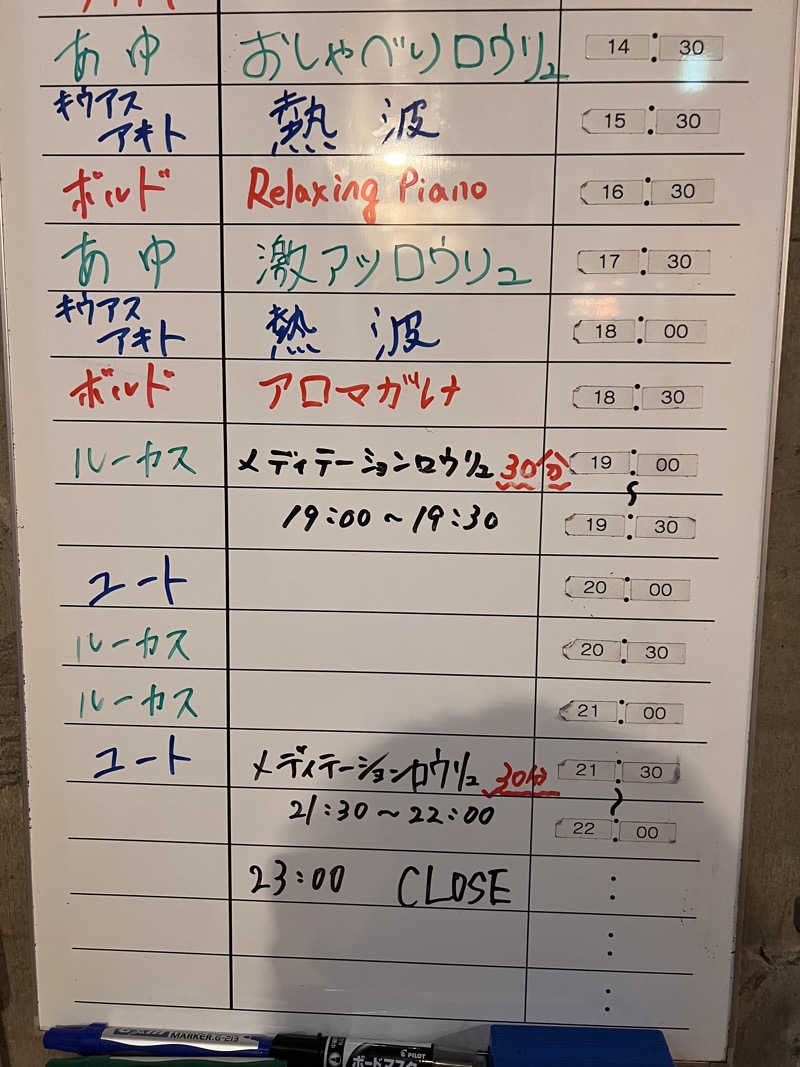 あゆ おしゃべりロウリュ 14:30
キウアス
アキト 熱波 15:30
ボルド Relaxing Piano 16:30
あゆ 激アツロウリュ 17:30
キウアス
アキト 熱波 18:00
ボルド アロマガルナ 18:30
ルーカス メディテーションロウリュ 30分 19:00
19:00～19:30 19:30
ユート 20:00
ルーカス 20:30
ルーカス 21:00
ユート メディテーションロウリュ 30分 21:30
21:30～22:00 22:00
23:00 CLOSE :
:
:
MARKER.G-213
PILOT
ボードマスター